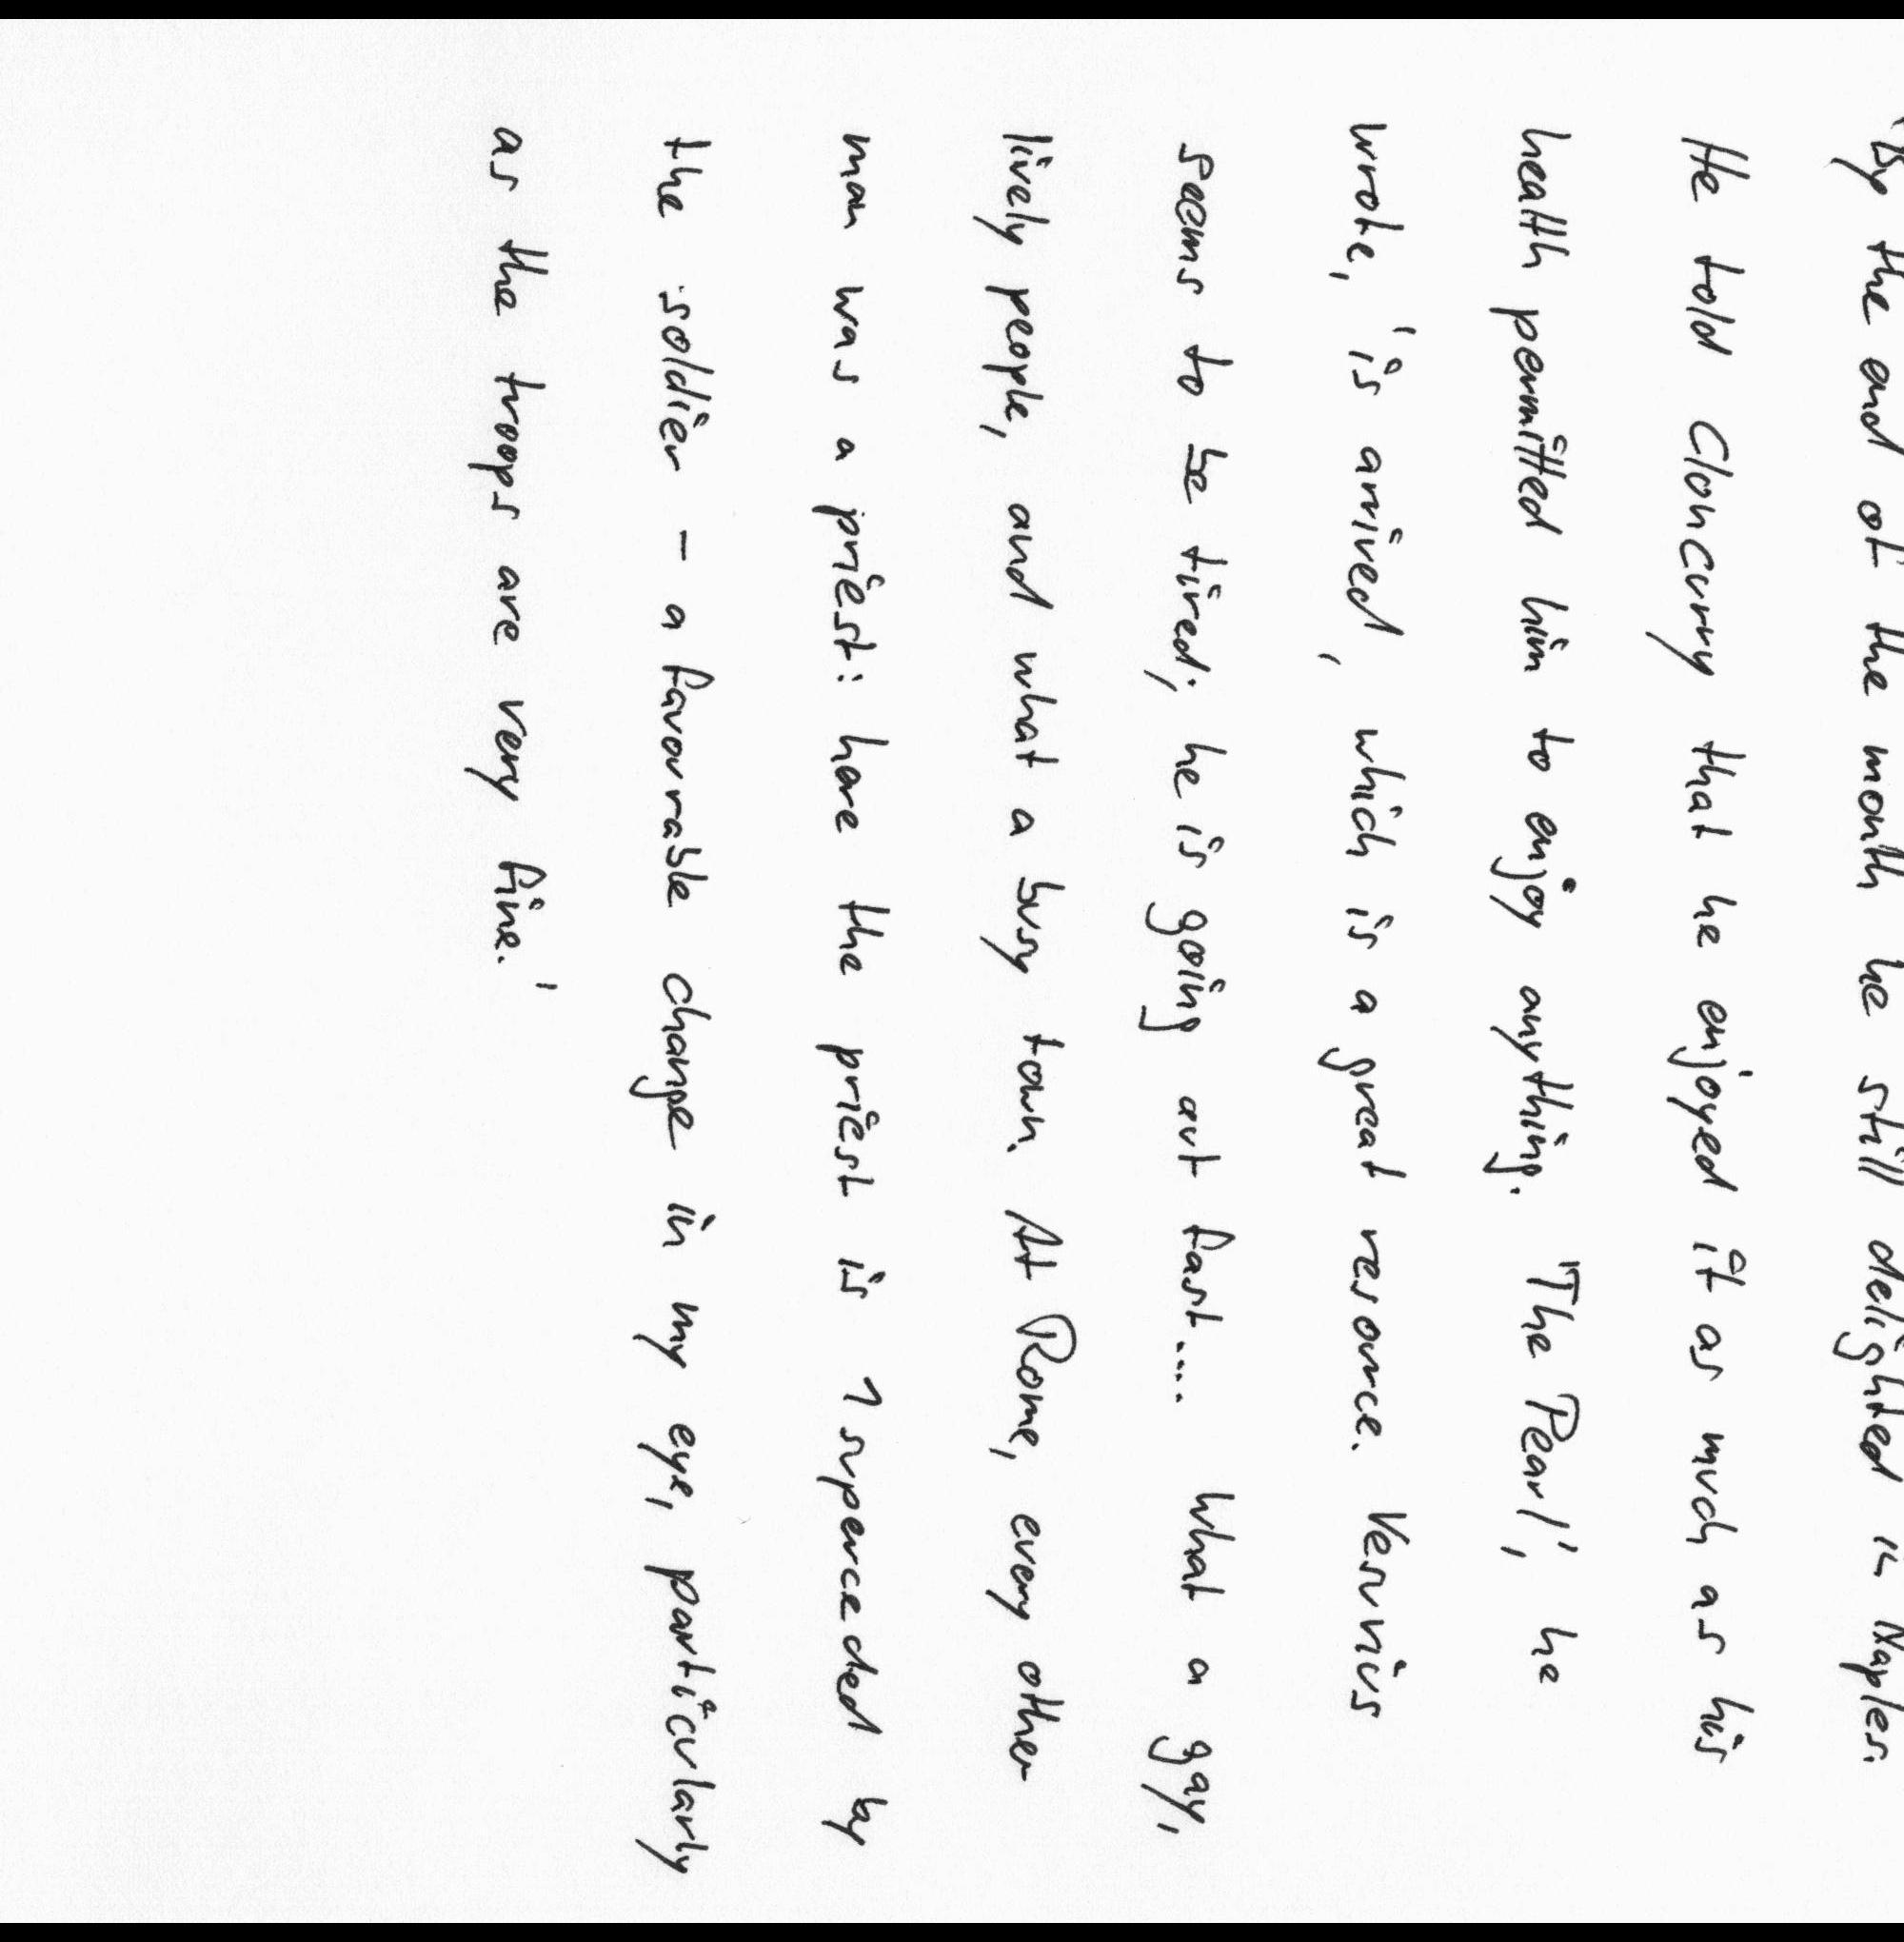 'By the end of the month he still delighted in Naples.
He told Cloncurry that he enjoyed it as much as his
health permitted him to enjoy anything. "The Pearl', he
wrote, 'is arrived, which is a great resource. Vesuvius
seems to be tired; he is going out fast.... What a gay,
lively people, and what a busy town. At Rome, every other
man was a priest: here the priest is superceded by
the soldier - a favourable change in my eye, particularly
as the troops are very fine.'